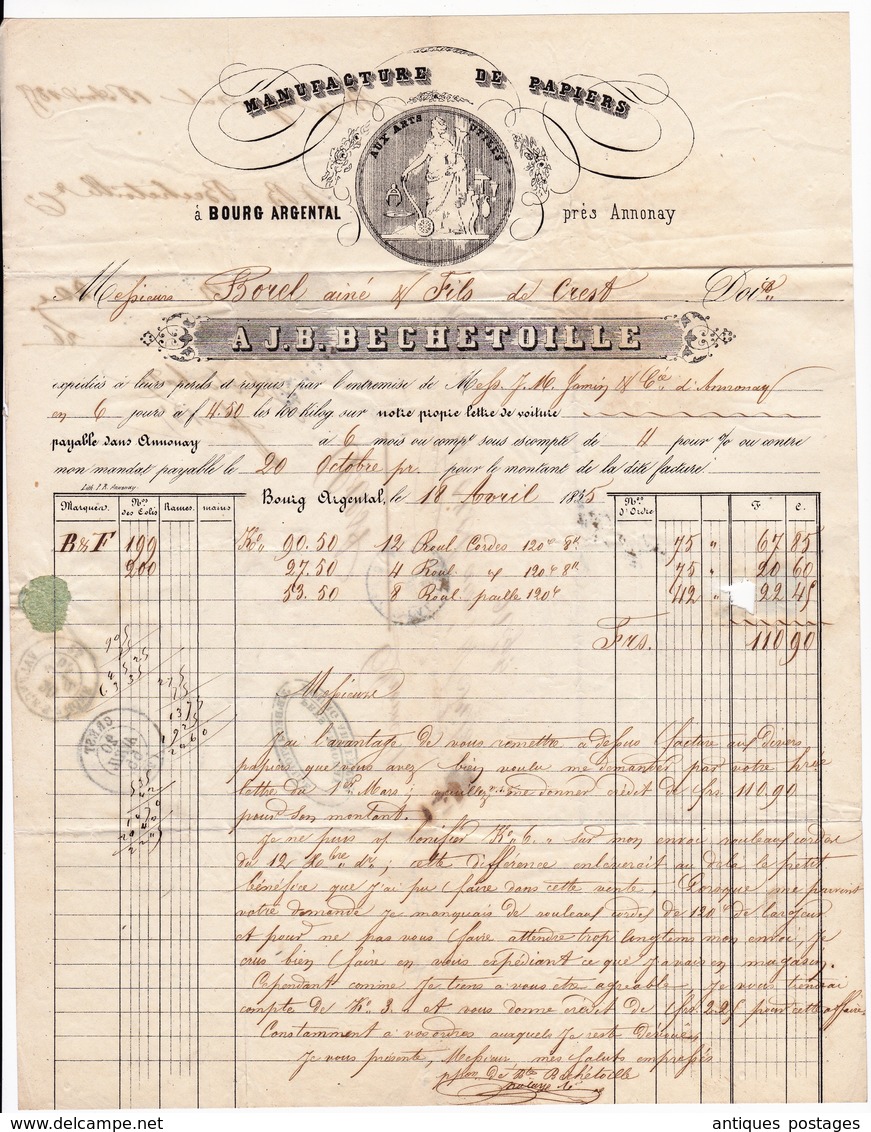 MANUFACTURE DE PAPIERS
AUX ARTS UTILES
à BOURG ARGENTAL près Annonay
Messieurs Borel ainé & Fils de Crest Doiv.
A J.B. BECHETOILLE
expédiés à leurs perils et risques par l'entremise de Mess. J. M. Jamin & Cie d'Annonay
en 6 jours à f 4.50 les 100 Kilog sur notre propre lettre de voiture
payable dans Annonay à 6 mois ou compt sous escompte de 4 pour % ou contre
mon mandat payable le 20 Octobre pr. pour le montant de la dite facture.
Bourg Argental, le 18 Avril 1855
Marques. Nos des Colis Rames. mains No d'Ordre F C.
B&F 199 Ko 90.50 12 Roul Cordes 120 75 " 67 85
200 27.50 4 Roul 120 75 " 20 60
53.50 8 Roul. paille 120 42 " 22 45
Frs. 110 90
Messieurs
J'ai l'avantage de vous remettre ci dessus facture aux divers
papiers que vous avez bien voulu me demander par votre prisée
lettre du 1er Mars; veuillez me donner crédit de frs. 110.90
pour son montant.
Je ne puis y bonifier Ko 6. " sur mon envoi rouleaux cordes
du 12 Xbre dr; cette différence enleverait au delà le petit
bénéfice que j'ai pu faire dans cette vente. Lorsque me parvint
votre demande je manquais de rouleaux cordes de 120 de largeur
et pour ne pas vous faire attendre trop longtems mon envoi, je
crus bien faire en vous expédiant ce que j'avais en magasin.
Cependant comme je tiens à vous etre agréable, je vous tiendrai
compte de Ko 3. " et vous donne crédit de frs. 2.25 pour cette affaire
Constamment à vos ordres auxquels je reste dévoué,
Je vous présente, Messieurs mes saluts empressés
Bechétoille
antiques postages